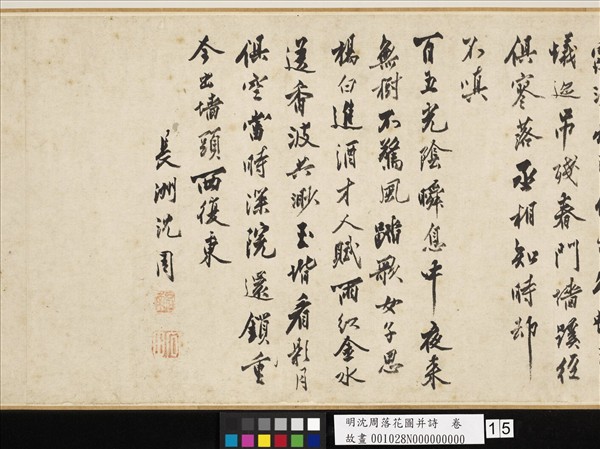 蟻迹弔殘春門墻蹊徑
俱寥落丞相知時却
不嗔
百五光陰瞬息中夜來
無樹不驚風踏歌女子思
楊白進酒才人賦雨紅金水
送香波共渺玉堦看影月
俱空當時深院還鎖重
今出墻頭西復東
長洲沈周
明沈周落花圖并詩 卷
故畫 001028N000000000
15